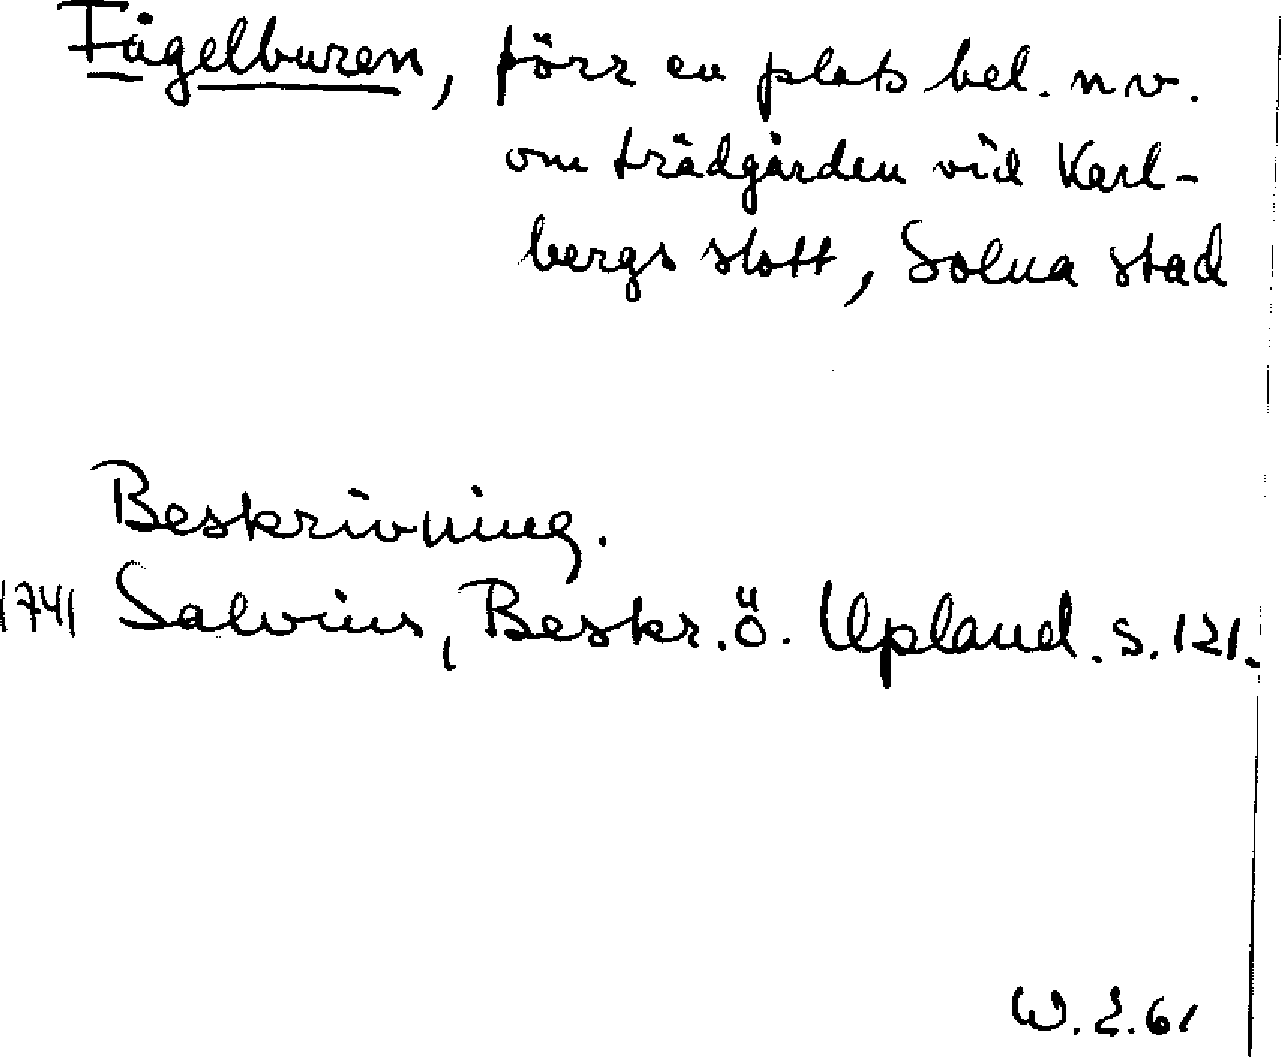 Fågelburen, förr en plats bel. nv.
om trädgården vid Karl-
bergs slott, Solna stad
Beskrivning.
1741 Salvius, Beskr. ö. Upland. s. 121.
W. 2. 61